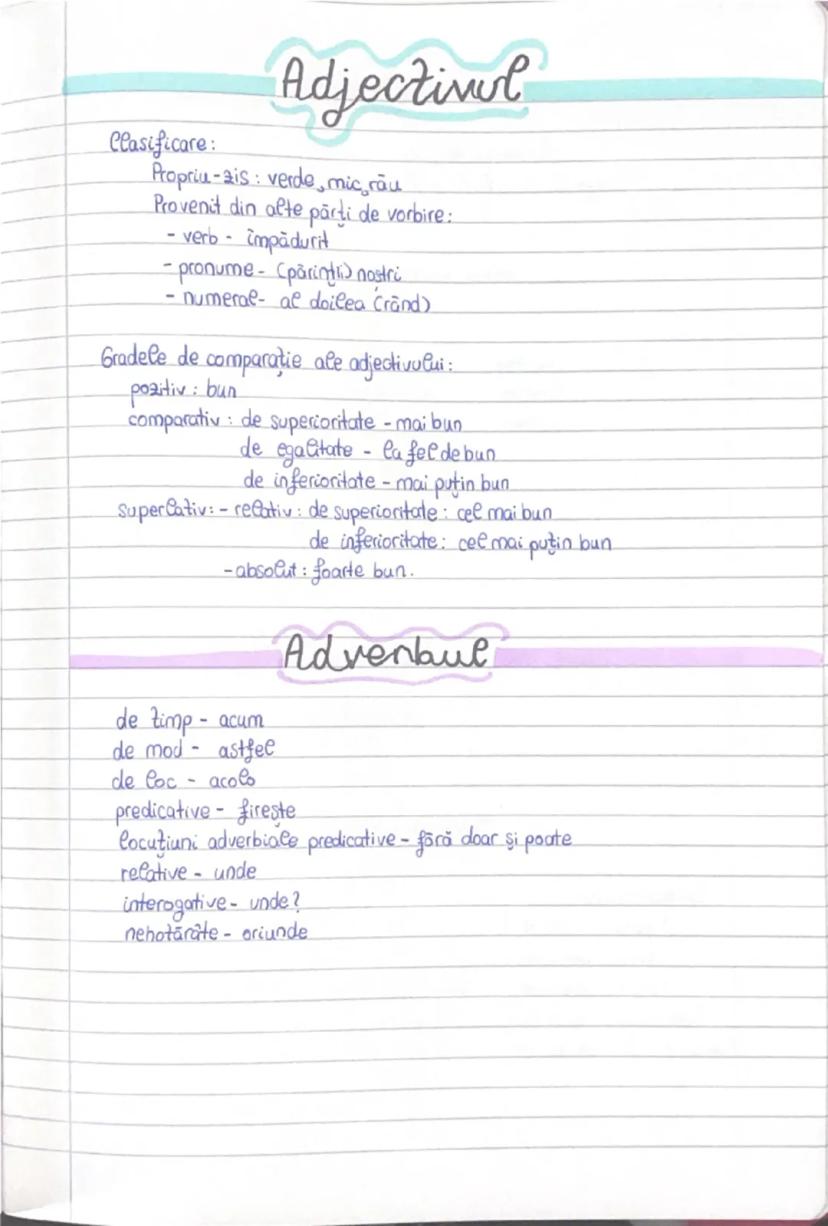 Adjectivul
Clasificare:
Propriu-zis: verde, mic, rău
Provenit din alte părți de vorbire:
- verb - împădurit
- pronume - (părinții) noștri
- numeral - al doilea (rând)
Gradele de comparație ale adjectivului:
pozitiv: bun
comparativ: de superioritate - mai bun
de egalitate - la fel de bun
de inferioritate - mai puțin bun
superlativ: - relativ: de superioritate: cel mai bun
de inferioritate: cel mai puțin bun
- absolut: foarte bun.
Adverbul
de timp - acum
de mod - astfel
de loc - acolo
predicative - firește
locuțiuni adverbiale predicative - fără doar și poate
relative - unde
interogative - unde?
nehotărâte - oriunde